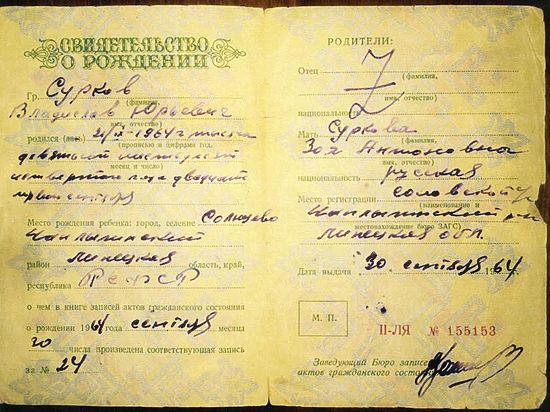 СВИДЕТЕЛЬСТВО
О РОЖДЕНИИ
Гр. Сурков
(фамилия)
Владислав Юрьевич
имя, отчество)
родился (лась) 21/IX-1964 г тысяча
(прописью и цифрами год,
девятьсот шестьдесят
месяц и число)
четвертого года двадцать
первого сентября
Место рождения ребенка: город, селение Солнцево
Чаплыгинский
район Липецкая область, край,
республика РСФСР
о чем в книге записей актов гражданского состояния
о рождении 1964 года сентября месяца
30 числа произведена соответствующая запись
за № 24
РОДИТЕЛИ:
Отец
(фамилия,
имя, отчество)
национальность
Мать Суркова
(фамилия,
Зоя Антоновна
имя, отчество)
национальность русская
Место регистрации
(наименование и
Чаплыгинский р-н
местонахождение бюро ЗАГС)
Липецкая обл.
Дата выдачи 30 сентября 1964
М. П.
II-ЛЯ № 155153
Заведующий Бюро записи
актов гражданского состояния